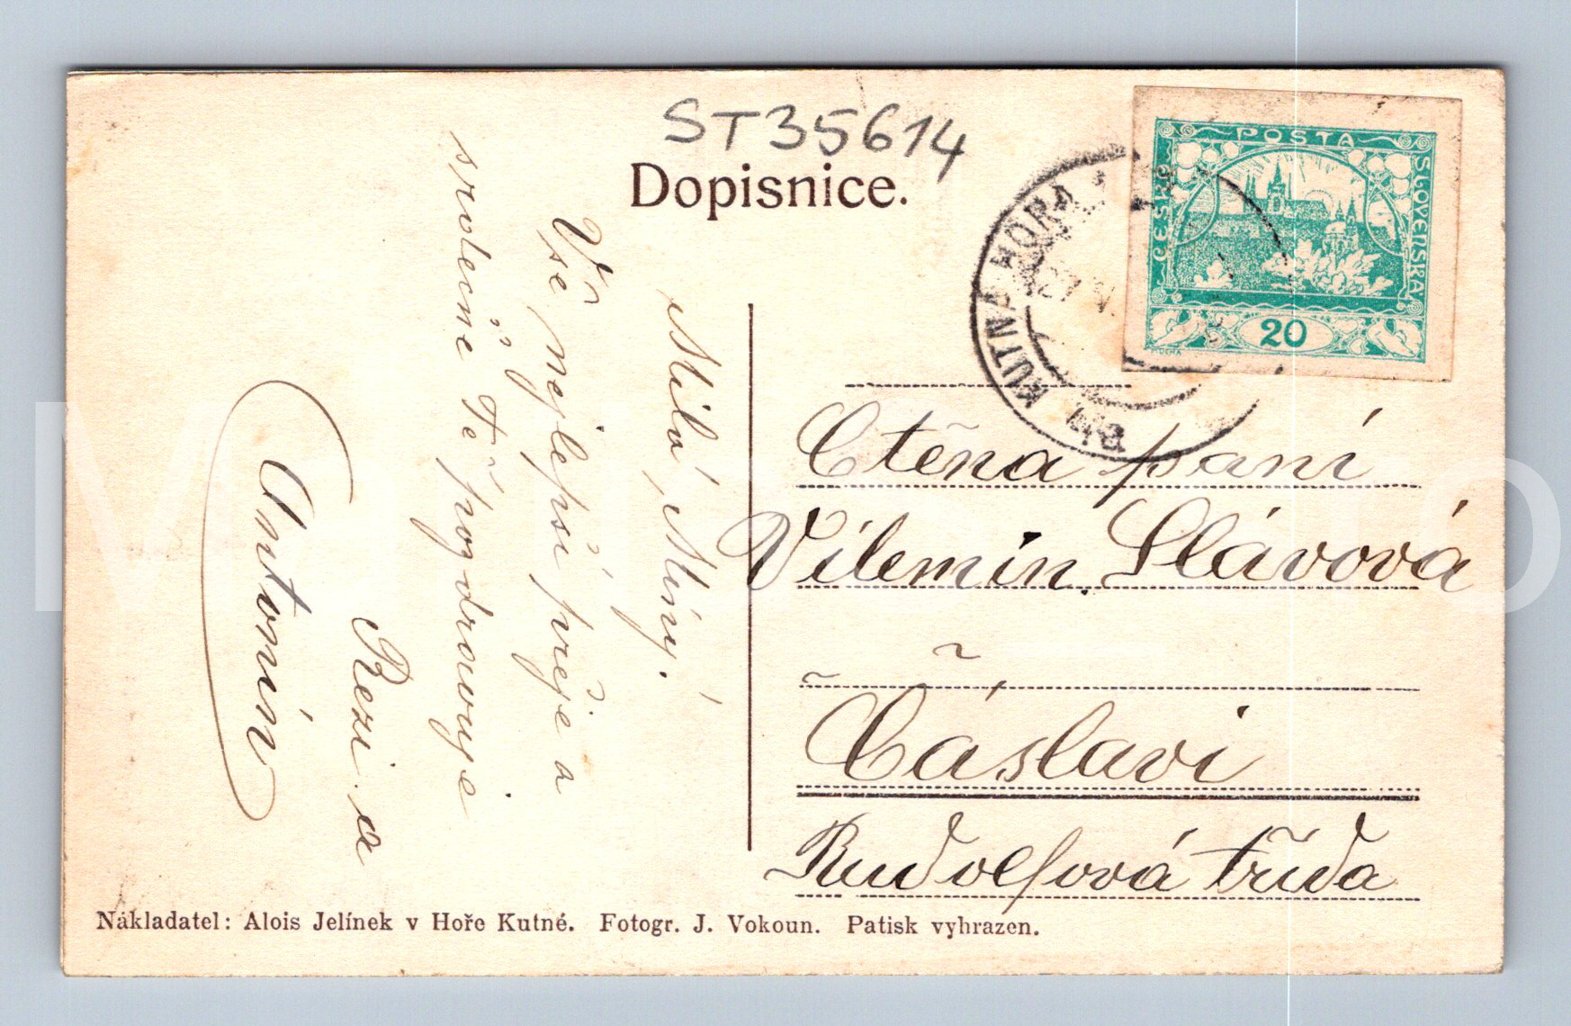 ST35614
Dopisnice.
POŠTA
ČESKO
SLOVENSKÁ
20
MUCHA
KUTNÁ HORA
27
Milá Míny!
Vše nejlepší přeje a
srdečně Tě pozdravuje
Rezi a
Antonín
Ctěná paní
Vilemín. Slávová
v
Čáslavi
Rudolfová třída
Nakladatel: Alois Jelínek v Hoře Kutné. Fotogr. J. Vokoun. Patisk vyhrazen.